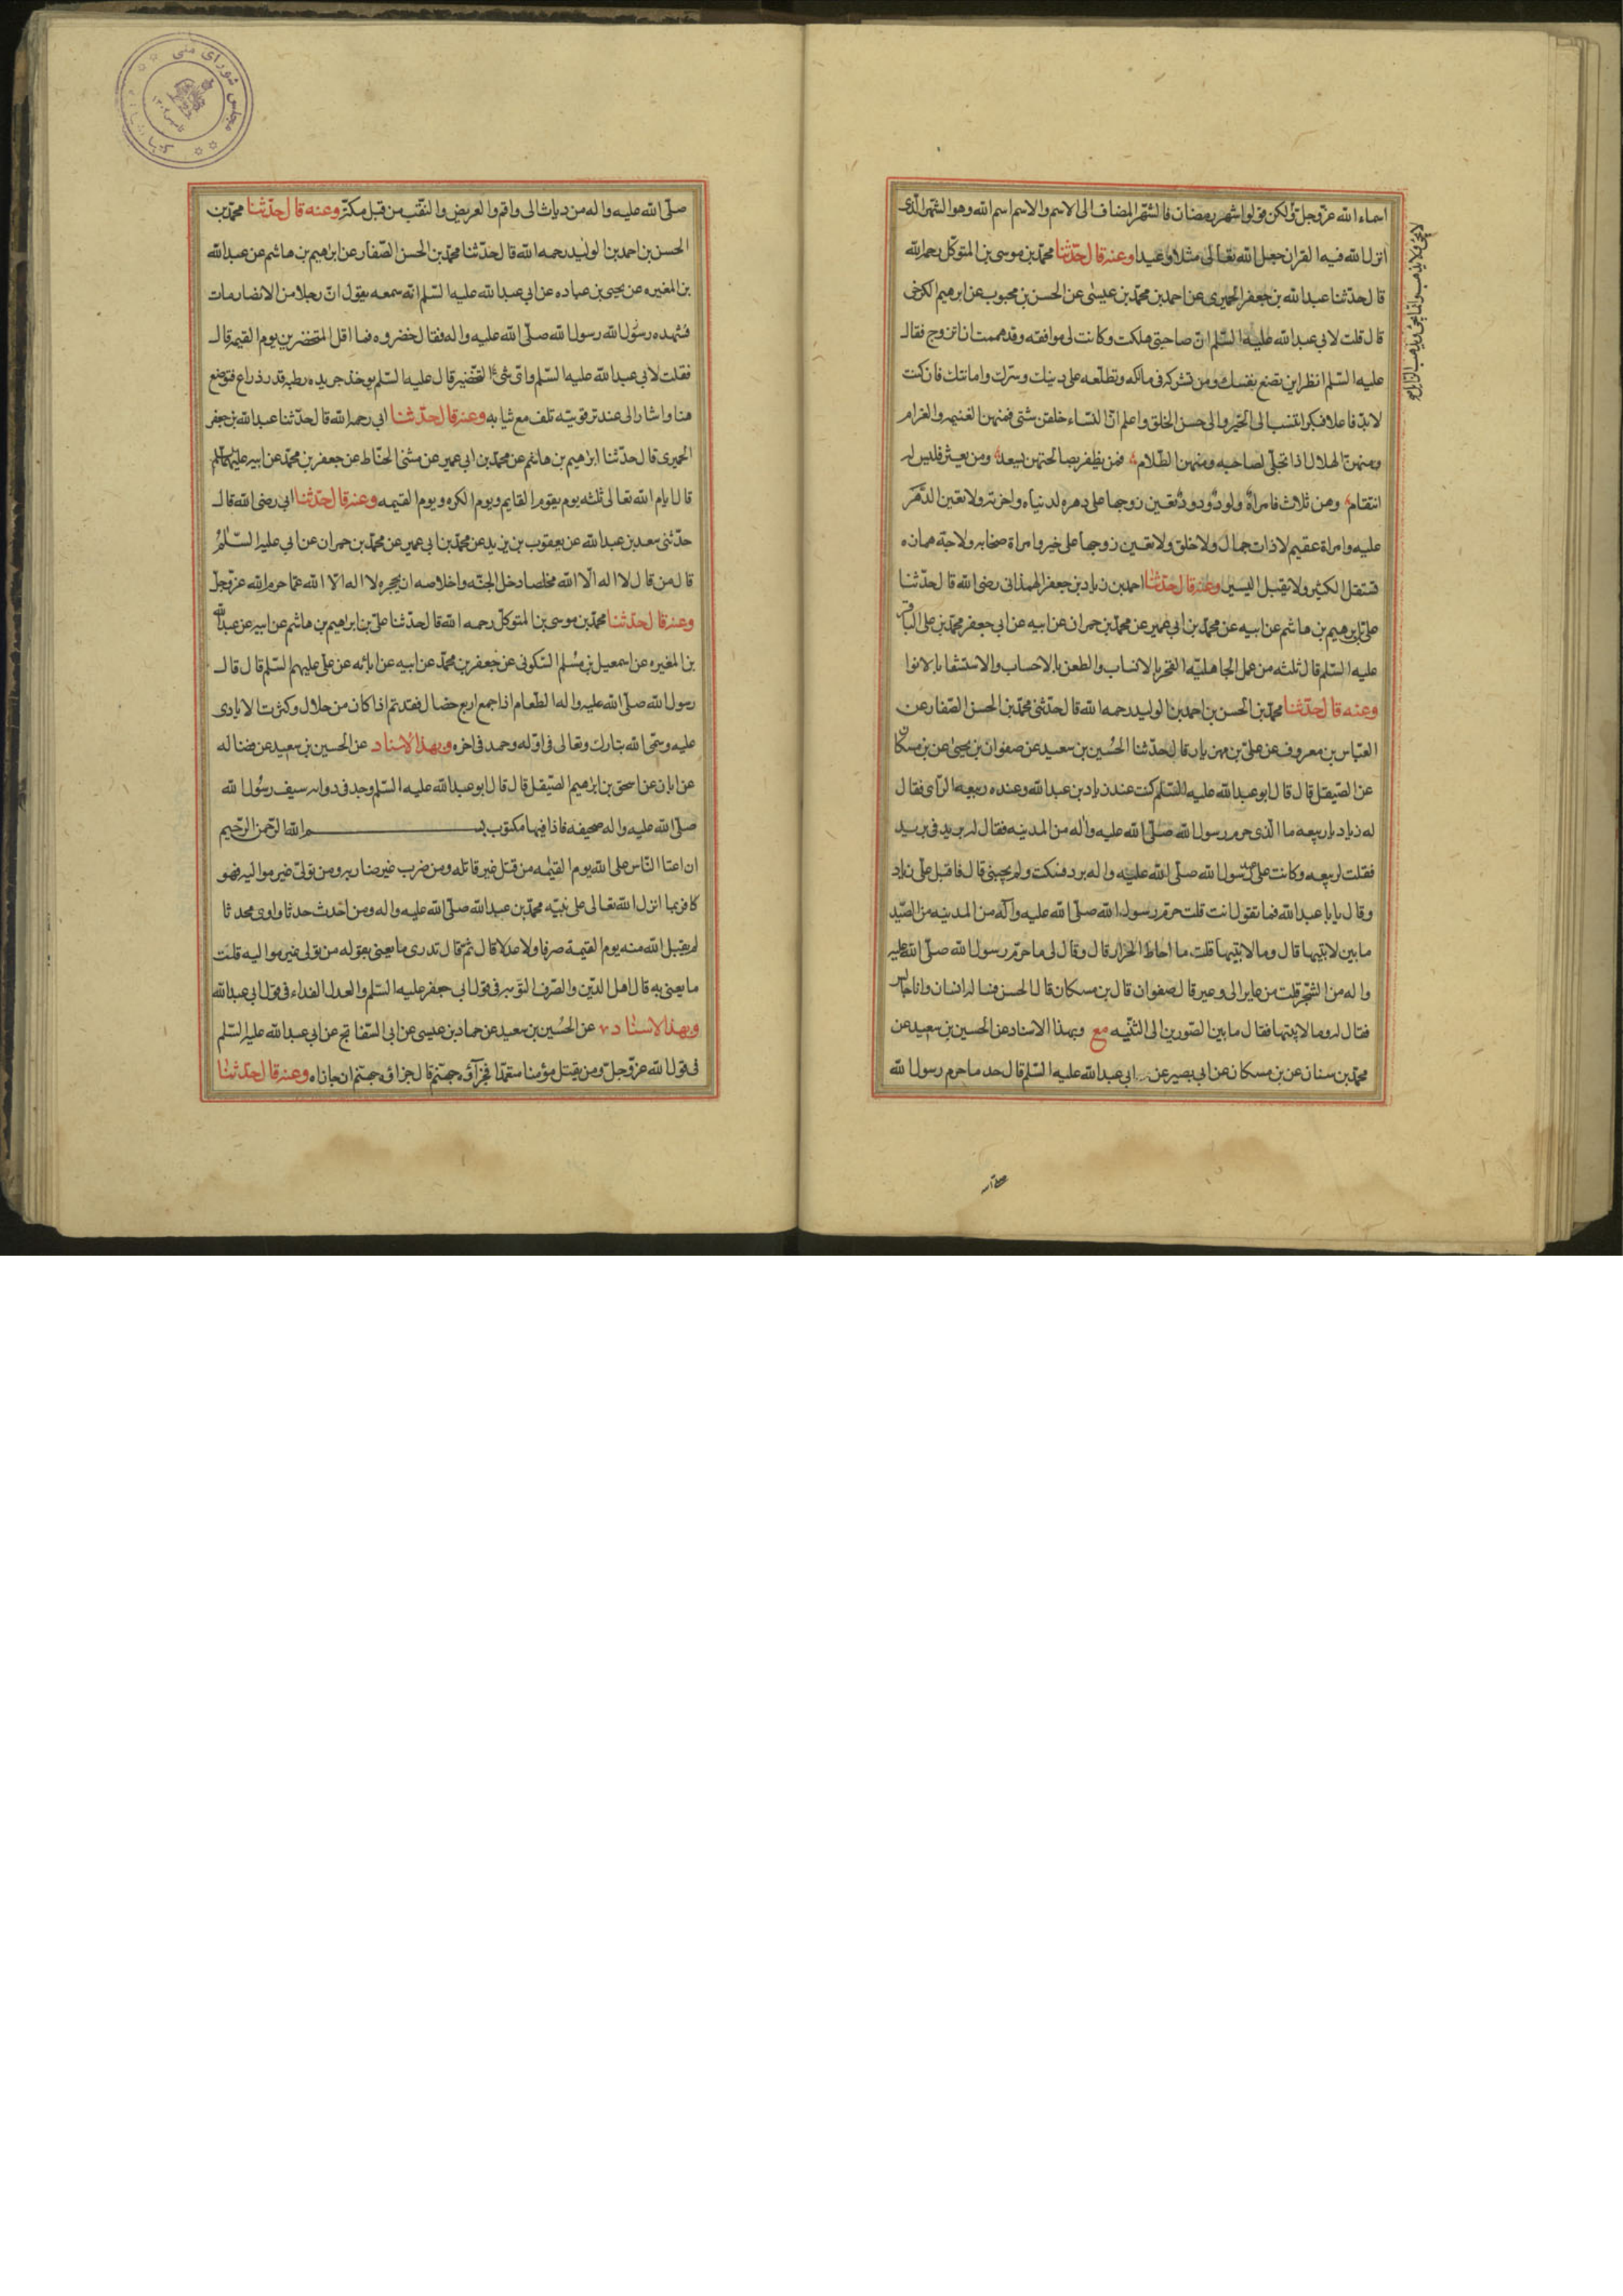 اسماء الله عزوجل ولكن قولوا شهر رمضان فالشهر المضاف الى الاسم والاسم اسم الله وهو الشهر الذى
انزل الله فيه القران جعل الله تعالى مثلا وعيدا وعنه قال حدّثنا محمّد بن موسى بن المتوكل رحمه الله
قال حدّثنا عبد الله بن جعفر الحميرى عن احمد بن محمّد بن عيسى عن الحسن بن محبوب عن ابرهيم الكرخى
قال قلت لابى عبد الله عليه السّلم انّ صاحبتى هلكت وكانت لى موافقه وقد هممت ان اتزوج فقال
عليه السّلم انظر اين تضع نفسك ومن تشركه فى مالك وتطلعه على دينك وسرّك وامانتك فان كنت
لابدّ فاعلا فبكرا تنسب الى الخير والى حسن الخلق واعلم انّ النساء خلقن شتى فمنهن الغنيمه والغرام
ومنهنّ الهلال اذا تجلّى لصاحبه ومنهن الظلام فمن يظفر بصالحتهن يسعد ومن يعثر فليس له
انتقام وهن ثلاث فامراة ولود ودود تعين زوجها على دهره لدنياه واخرته ولا تعين الدّهر
عليه وامراة عقيم لا ذات جمال ولا خلق ولا تعين زوجها على خير وامراة صخابه ولاجة همازه
تستقل الكثير ولا تقبل اليسير وعنه قال حدّثنا احمد بن زياد بن جعفر الهمذانى رضى الله قال حدّثنا
على بن ابرهيم بن هاشم عن ابيه عن محمّد بن ابى عمير عن محمّد بن حمران عن ابيه عن ابى جعفر محمّد بن على الباقر
عليه السّلم قال ثلثه من عمل الجاهليّه الفخر بالانساب والطعن بالاحساب والاستسقا بالانوا
وعنه قال حدّثنا محمّد بن الحسن بن احمد بن الوليد رحمه الله قال حدّثنى محمّد بن الحسن الصّفار عن
العبّاس بن معروف عن على بن مهزيار قال حدّثنا الحسين بن سعيد عن صفوان بن يحيى عن بن مسكان
عن الصّيقل قال قال ابو عبد الله عليه السّلم كنت عند زياد بن عبد الله وعنده ربيعه الرّاى فقال
له زياد يا ربيعه ما الّذى حرم رسول الله صلّى الله عليه واله من المدينه فقال له بريد فى بريد
فقلت لربيعه وكانت على عهد رسول الله صلّى الله عليه واله برد فسكت ولم يجبنى قال فاقبل على زياد
وقال يا با عبد الله فما تقول انت قلت حرّم رسول الله صلّى الله عليه وآله من المدينه من الصّيد
ما بين لابتيها قال وما لابتيها قلت ما احاط الحرار قال وقال لى ما حرّم رسول الله صلّى الله عليه
واله من الشجر قلت من عاير الى وعير قال صفوان قال بن مسكان قال الحسن فساله انسان وانا جالس
فقال له وما لابتيها فقال ما بين الصّورين الى الثنّيه مع وبهذا الاسناد عن الحسين بن سعيد عن
محمّد بن سنان عن بن مسكان عن ابى بصير عن ابى عبد الله عليه السّلم قال حد ما حرم رسول الله
صلّى الله عليه واله من دباب الى واقم والعريض والنقب من قبل مكة وعنه قال حدّثنا محمّد بن
الحسن بن احمد بن الوليد رحمه الله قال حدّثنا محمّد بن الحسن الصّفار عن ابرهيم بن هاشم عن عبد الله
بن المغيره عن يحيى بن عباده عن ابى عبد الله عليه السّلم انّه سمعه يقول انّ رجلا من الانصار مات
فشهده رسول الله رسول الله صلّى الله عليه واله فقال خضروه فما اقل المتخضرين يوم القيمه قال
فقلت لابى عبد الله عليه السّلم واى شئ التخضير قال عليه السّلم يوخذ جريده رطبه قدر ذراع فتوضع
هنا واشار الى عند ترقوته تلف مع ثيابه وعنه قال حدّثنا ابى رحمه الله قال حدّثنا عبد الله بن جعفر
الحميرى قال حدّثنا ابرهيم بن هاشم عن محمّد بن ابى عمير عن مثنى الحنّاط عن جعفر بن محمّد عن ابيه عليهما السّلم
قال ايام الله تعالى ثلثه يوم يقوم القايم ويوم الكره ويوم القيمه وعنه قال حدّثنا ابى رضى الله قال
حدّثنى سعد بن عبد الله عن يعقوب بن يزيد عن محمّد بن ابى عمير عن محمّد بن حمران عن ابى عليه السّلم
قال من قال لا اله الّا الله مخلصا دخل الجنّه واخلاصه ان يحجره لا اله الّا الله عمّا حرم الله عزّوجلّ
وعنه قال حدّثنا محمّد بن موسى بن المتوكل رحمه الله قال حدّثنا علىّ بن ابراهيم بن هاشم عن ابيه عن عبد الله
بن المغيره عن اسمعيل بن مسلم السّكونى عن جعفر بن محمّد عن ابيه عن ابائه عن على عليهم السّلم قال قال
رسول الله صلّى الله عليه واله الطّعام اذا جمع اربع خصال فقد تمّ اذا كان من حلال وكثرت الايادى
عليه وسمّى الله تبارك وتعالى فى اوّله وحمد فى اخره وبهذا الاسناد عن الحسين بن سعيد عن فضاله
عن ابان عن اسحق بن ابرهيم الصّيقل قال قال ابو عبد الله عليه السّلم وجد فى ذوابه سيف رسول الله
صلّى الله عليه واله صحيفه فاذا فيها مكتوب بسم الله الرّحمن الرّحيم
ان اعتا النّاس على الله يوم القيمه من قتل غير قاتله ومن ضرب غير ضاربه ومن تولّى غير مواليه فهو
كافر بما انزل الله تعالى على نبيّه محمّد بن عبد الله صلّى الله عليه واله ومن احدث حدثا واوى محدثا
لم يقبل الله منه يوم القيمة صرفا ولا عدلا قال ثمّ قال تدرى ما يعنى بقوله من تولى غير مواليه قلت
ما يعنى به قال اهل الدّين والصّرف التوبه فى قول ابى جعفر عليه السّلم والعدل الفداء فى قول ابى عبد الله
وبهذا الاسناد عن الحسين بن سعيد عن حماد بن عيسى عن ابى السّفاتج عن ابى عبد الله عليه السّلم
فى قول الله عزّوجلّ ومن يقتل مؤمنا متعمّدا فجزآؤه جهنّم قال جزاؤه جهنّم ان جازاه وعنه قال حدّثنا
مجلس شوراى ملى